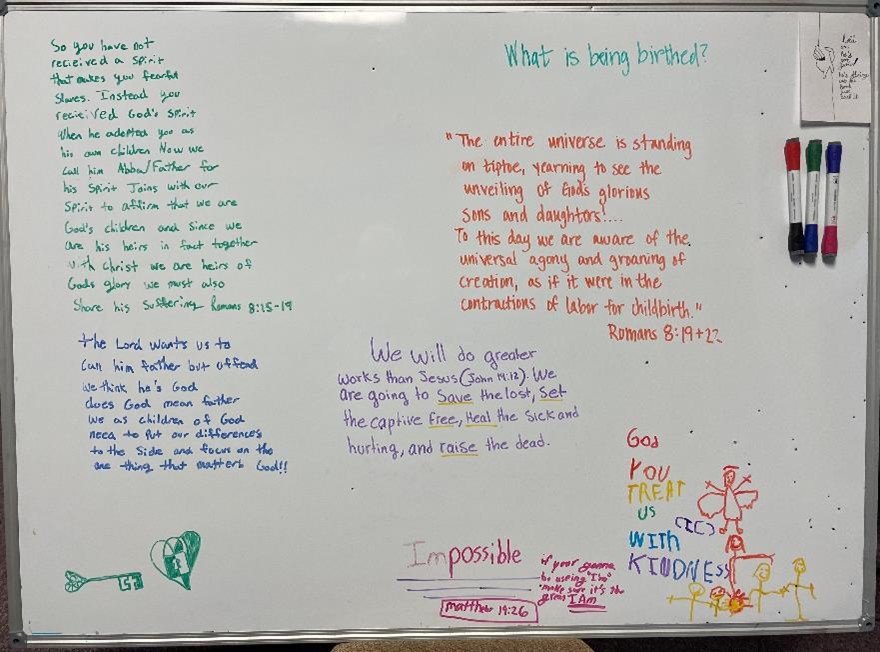 So you have not
recieived a spirit
that makes you fearful
slaves. Instead you
recieived God's spirit
when he adopted you as
his own children Now we
call him Abba/Father for
his spirit Joins with our
spirit to affirm that we are
God's children and since we
are his heirs in fact together
with Christ we are heirs of
Gods glory we must also
Share his suffering Romans 8:15-19
the Lord wants us to
call him father but offend
we think he's God
does God mean father
we as children of God
need to put our differences
to the side and focus on the
one thing that matters God!!
What is being birthed?
"The entire universe is standing
on tiptoe, yearning to see the
unveiling of God's glorious
sons and daughters!...
To this day we are aware of the
universal agony and groaning of
creation, as if it were in the
contractions of labor for childbirth."
Romans 8:19+22
We will do greater
works than Jesus (John 14:12). We
are going to Save the lost, Set
the captive free, Heal the sick and
hurting, and raise the dead.
Impossible
matthew 19:26
if your gonna
be useing "I'm"
make sure it's the
great I Am
God
YOU
TREAT
US
WITH
KINDNESS